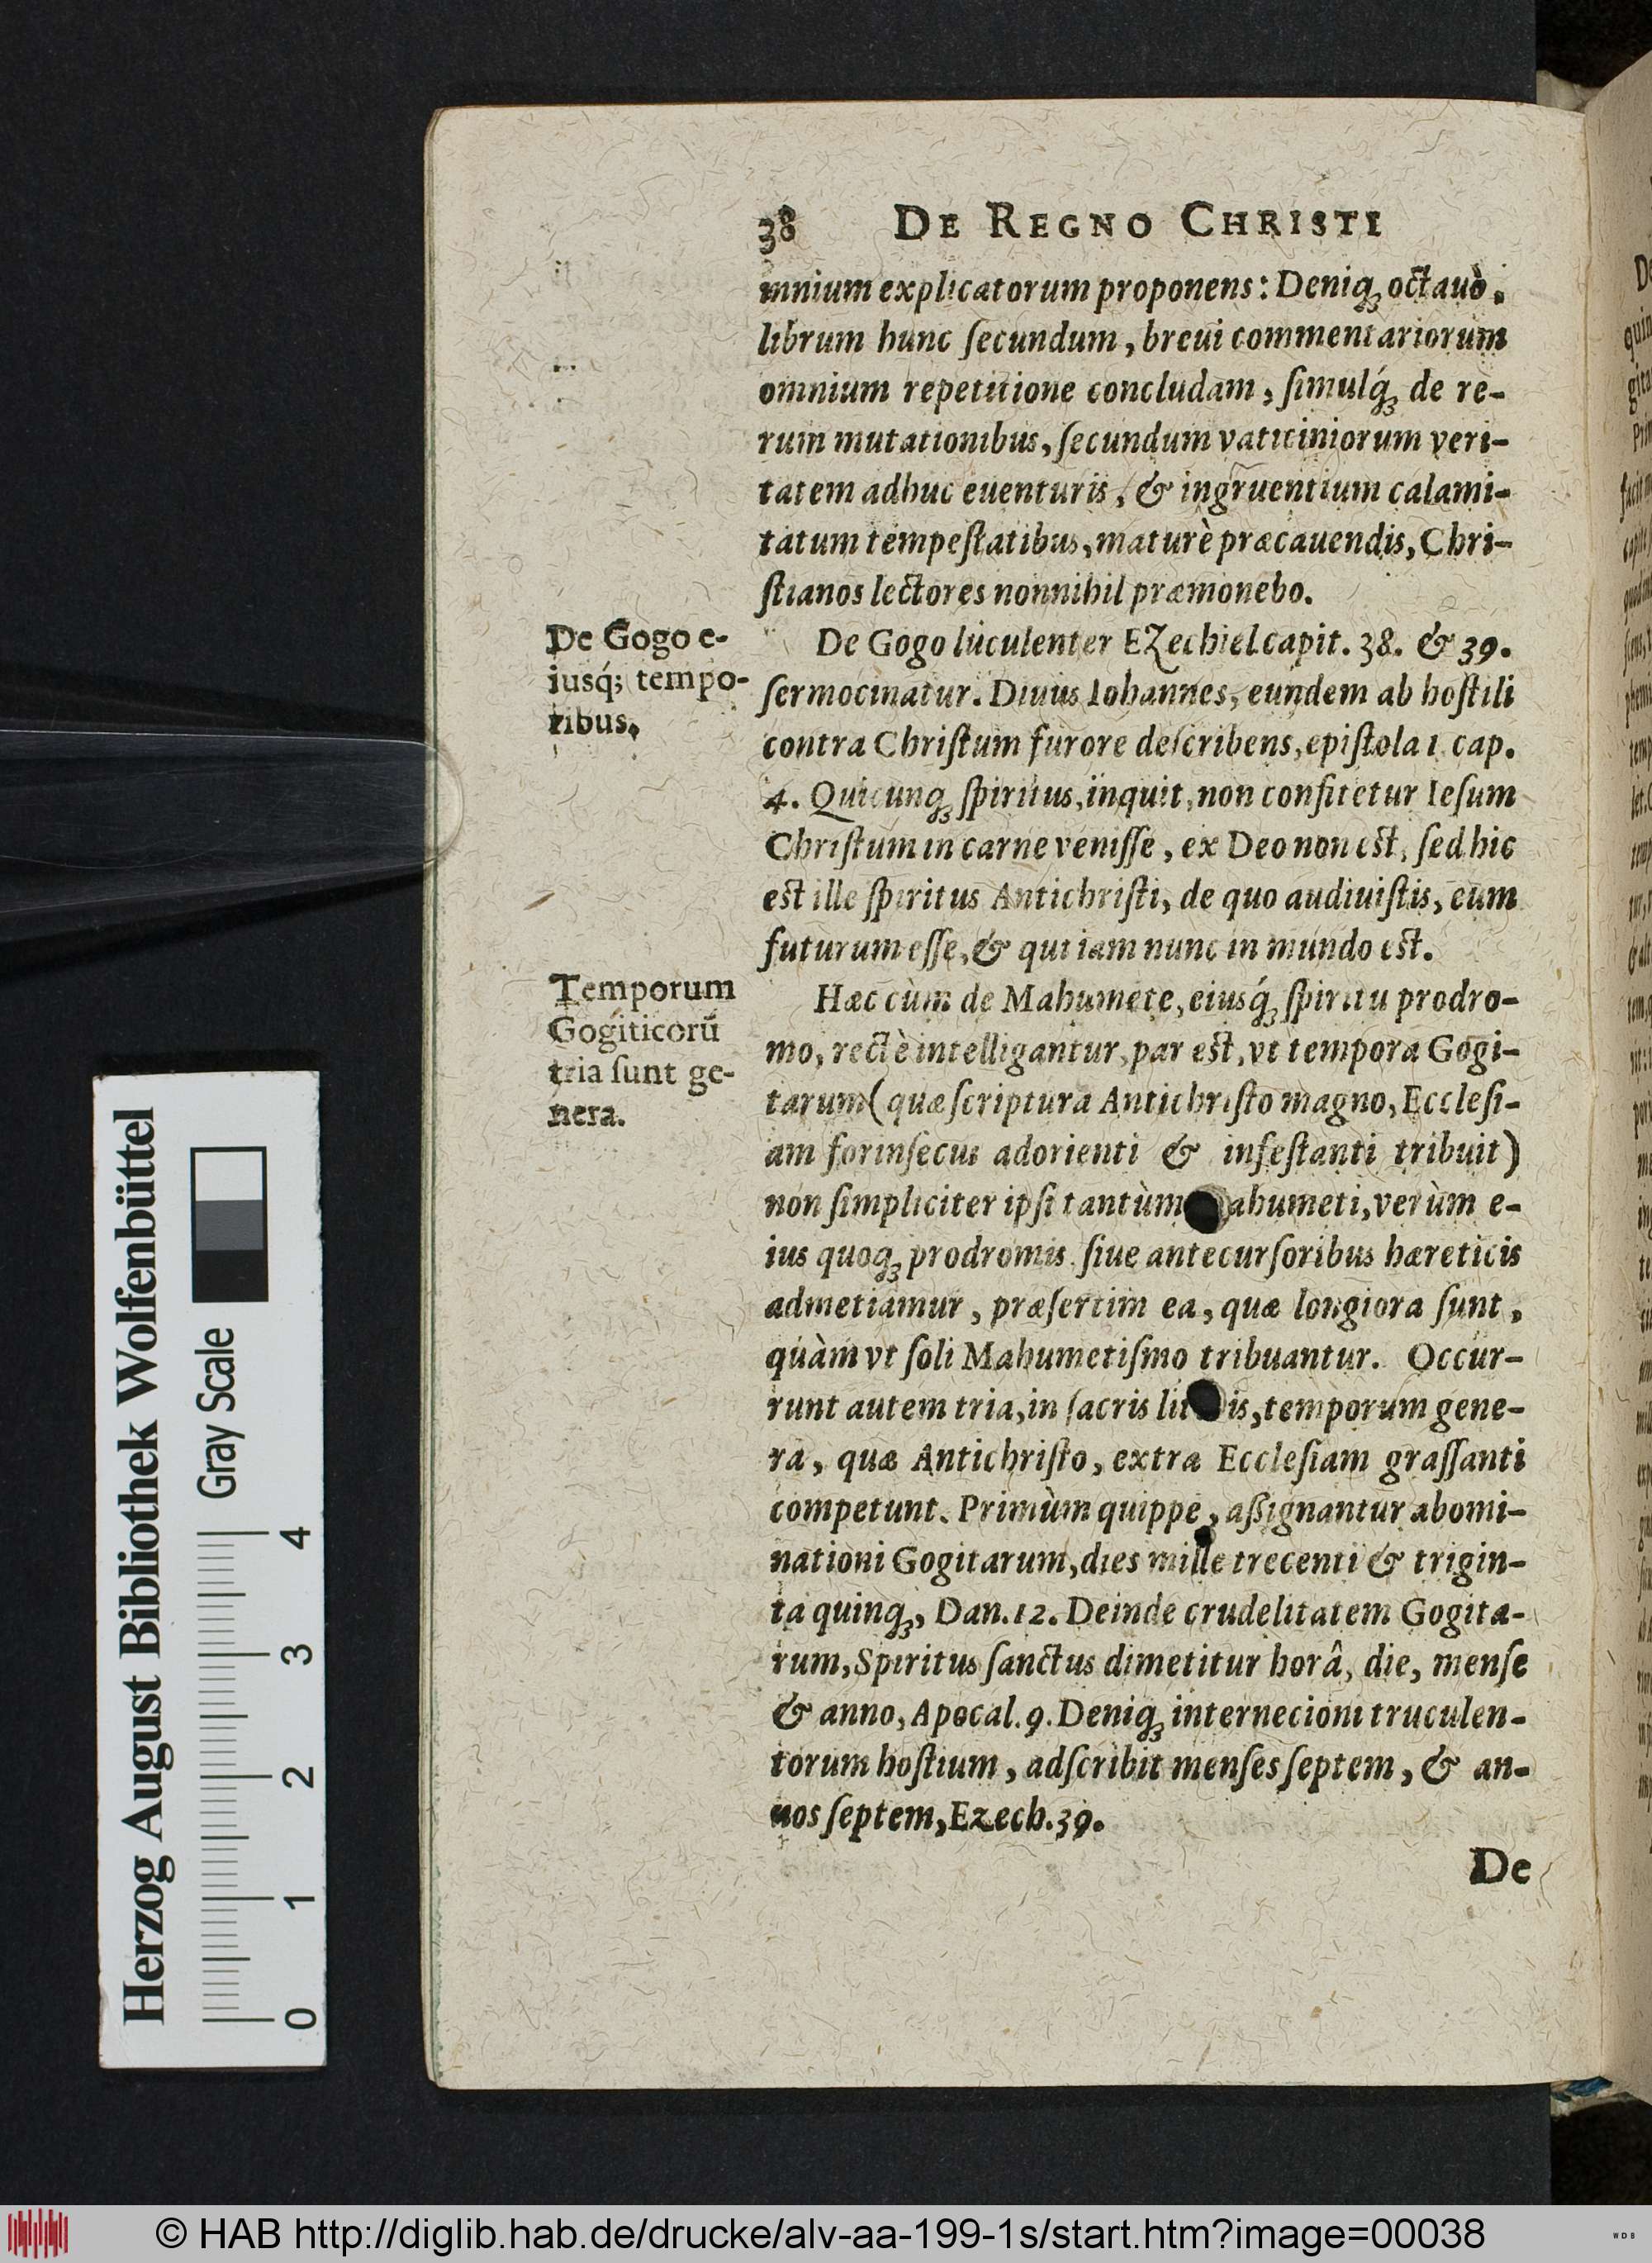 38 DE REGNO CHRISTI
mnium explicatorum proponens: Deniq; octauò,
librum hunc ſecundum, breui commentariorum
omnium repetitione concludam, ſimulq́; de re-
rum mutationibus, ſecundum vaticiniorum veri-
tatem adhuc euenturis, & ingruentium calami-
tatum tempeſtatibus, maturè præcauendis, Chri-
ſtianos lectores nonnihil præmonebo.
De Gogo e-
iusq́; tempo-
ribus.
De Gogo luculenter EZechiel capit. 38. & 39.
ſermocinatur. Diuus Iohannes, eundem ab hoſtili
contra Chriſtum furore deſcribens, epiſtola 1. cap.
4. Quicunq; ſpiritus, inquit, non confitetur Ieſum
Chriſtum in carne veniſſe, ex Deo non eſt, ſed hic
eſt ille ſpiritus Antichriſti, de quo audiuiſtis, eum
futurum eſſe, & qui iam nunc in mundo eſt.
Temporum
Gogiticorū
tria ſunt ge-
nera.
Hæc cùm de Mahumete, eiusq́; ſpiritu prodro-
mo, rectè intelligantur, par eſt, vt tempora Gogi-
tarum (quæ ſcriptura Antichriſto magno, Eccleſi-
am forinſecus adorienti & infeſtanti tribuit)
non ſimpliciter ipſi tantùm ahumeti, verùm e-
ius quoq; prodromis ſiue antecurſoribus hæreticis
admetiamur, præſertim ea, quæ longiora ſunt,
quàm vt ſoli Mahumetiſmo tribuantur. Occur-
runt autem tria, in ſacris lit is, temporum gene-
ra, quæ Antichriſto, extra Eccleſiam graſſanti
competunt. Primùm quippe, aßignantur abomi-
nationi Gogitarum, dies mille trecenti & trigin-
ta quinq;, Dan. 12. Deinde crudelitatem Gogita-
rum, Spiritus ſanctus dimetitur horâ, die, menſe
& anno, Apocal. 9. Deniq; internecioni truculen-
torum hoſtium, adſcribit menſes ſeptem, & an-
nos ſeptem, Ezech. 39.
De
Herzog August Bibliothek Wolfenbüttel
Gray Scale
0 1 2 3 4
© HAB http://diglib.hab.de/drucke/alv-aa-199-1s/start.htm?image=00038